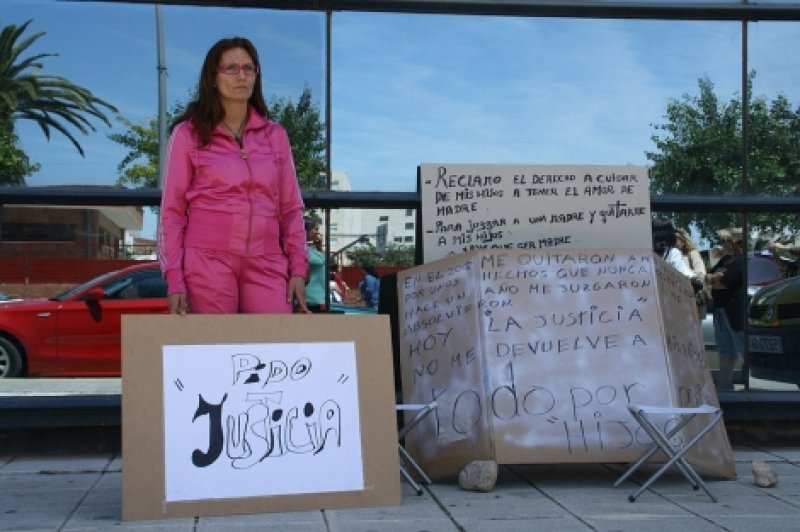 - RECLAMO EL DERECHO A CUIDAR
DE MIS HIJOS A TENER EL AMOR DE
MADRE.
- PARA JUZGAR A UNA MADRE Y QUITARLE
A MIS HIJOS
QUE SER MADRE
EN EL ME QUITARON A M
POR UNOS HECHOS QUE NUNCA
HACE UN AÑO ME JUZGARON
ABSOLVIERON
HOY "LA JUSTICIA"
NO ME DEVUELVE A
todo por
"HIJOS
" PIDO "
JUSTICIA